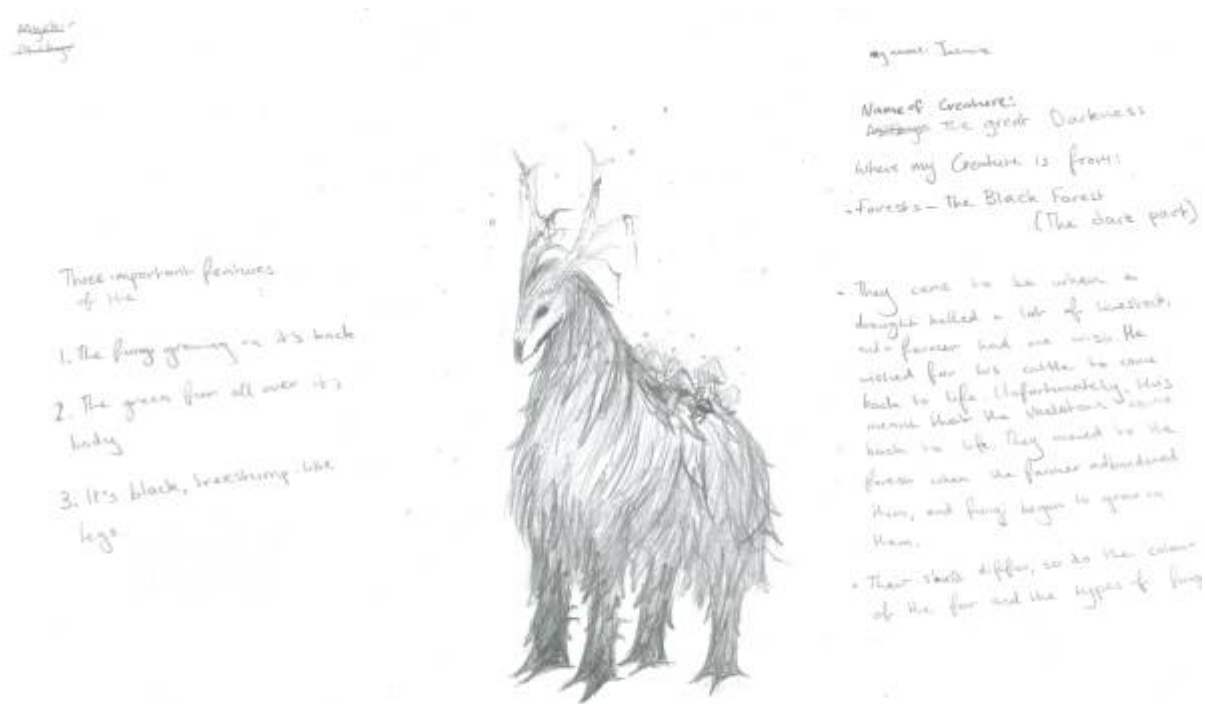 Three important features
of the
1. The fungi growing on it's back
2. The green fur all over its
body
3. It's black, treestump-like
legs
my name:
Name of Creature:
The great Darkness
Where my Creature is from:
- Forests - The Black Forest
(The dark part)
• They came to be when a
drought killed a lot of livestock,
and farmer had one wish. He
wished for his cattle to come
back to life. Unfortunately, this
meant that the skeletons came
back to life. They moved to the
forest when the farmer
them, and fungi began to grow on
them.
• Their skulls differ, so do the colour
of the fur and the types of fungi